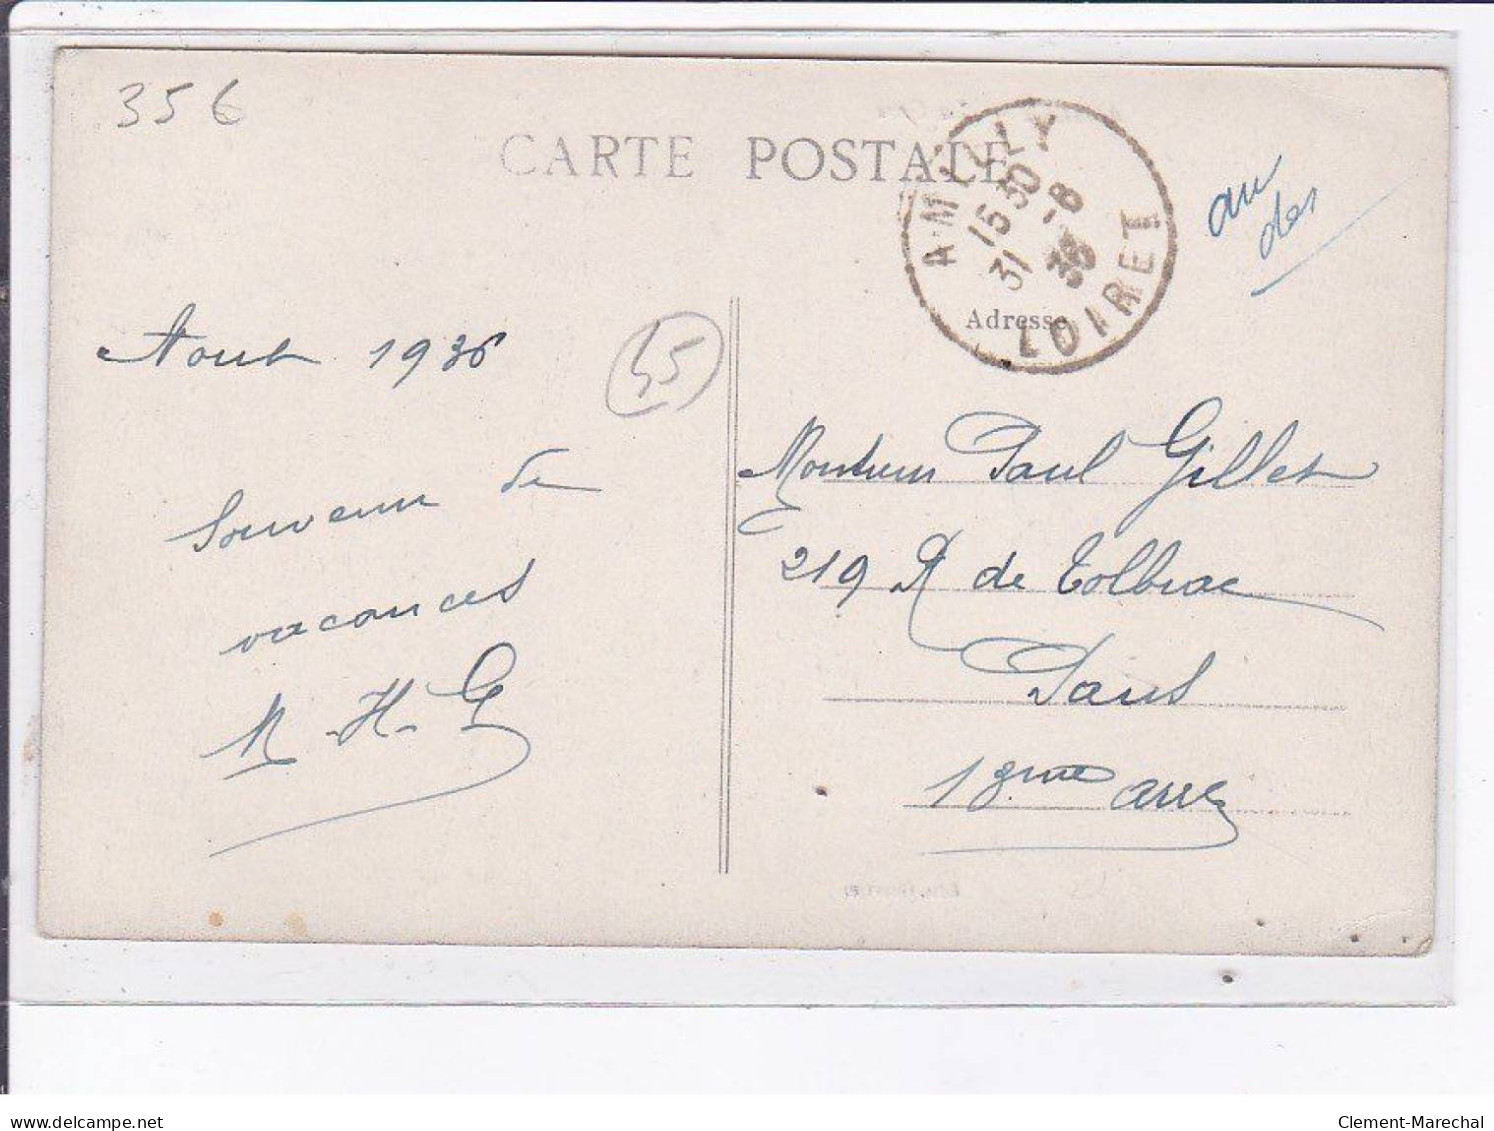 35 €
CARTE POSTALE
AMILLY
15 30
31 -8
36
LOIRET
au
dos
Adresse
Aout 1936
45
Souvenir de
vacances
M. H. G
Monsieur Paul Gillet
219 R de Tolbiac
Paris
13eme arr
delcampe.net
Clement-Marechal